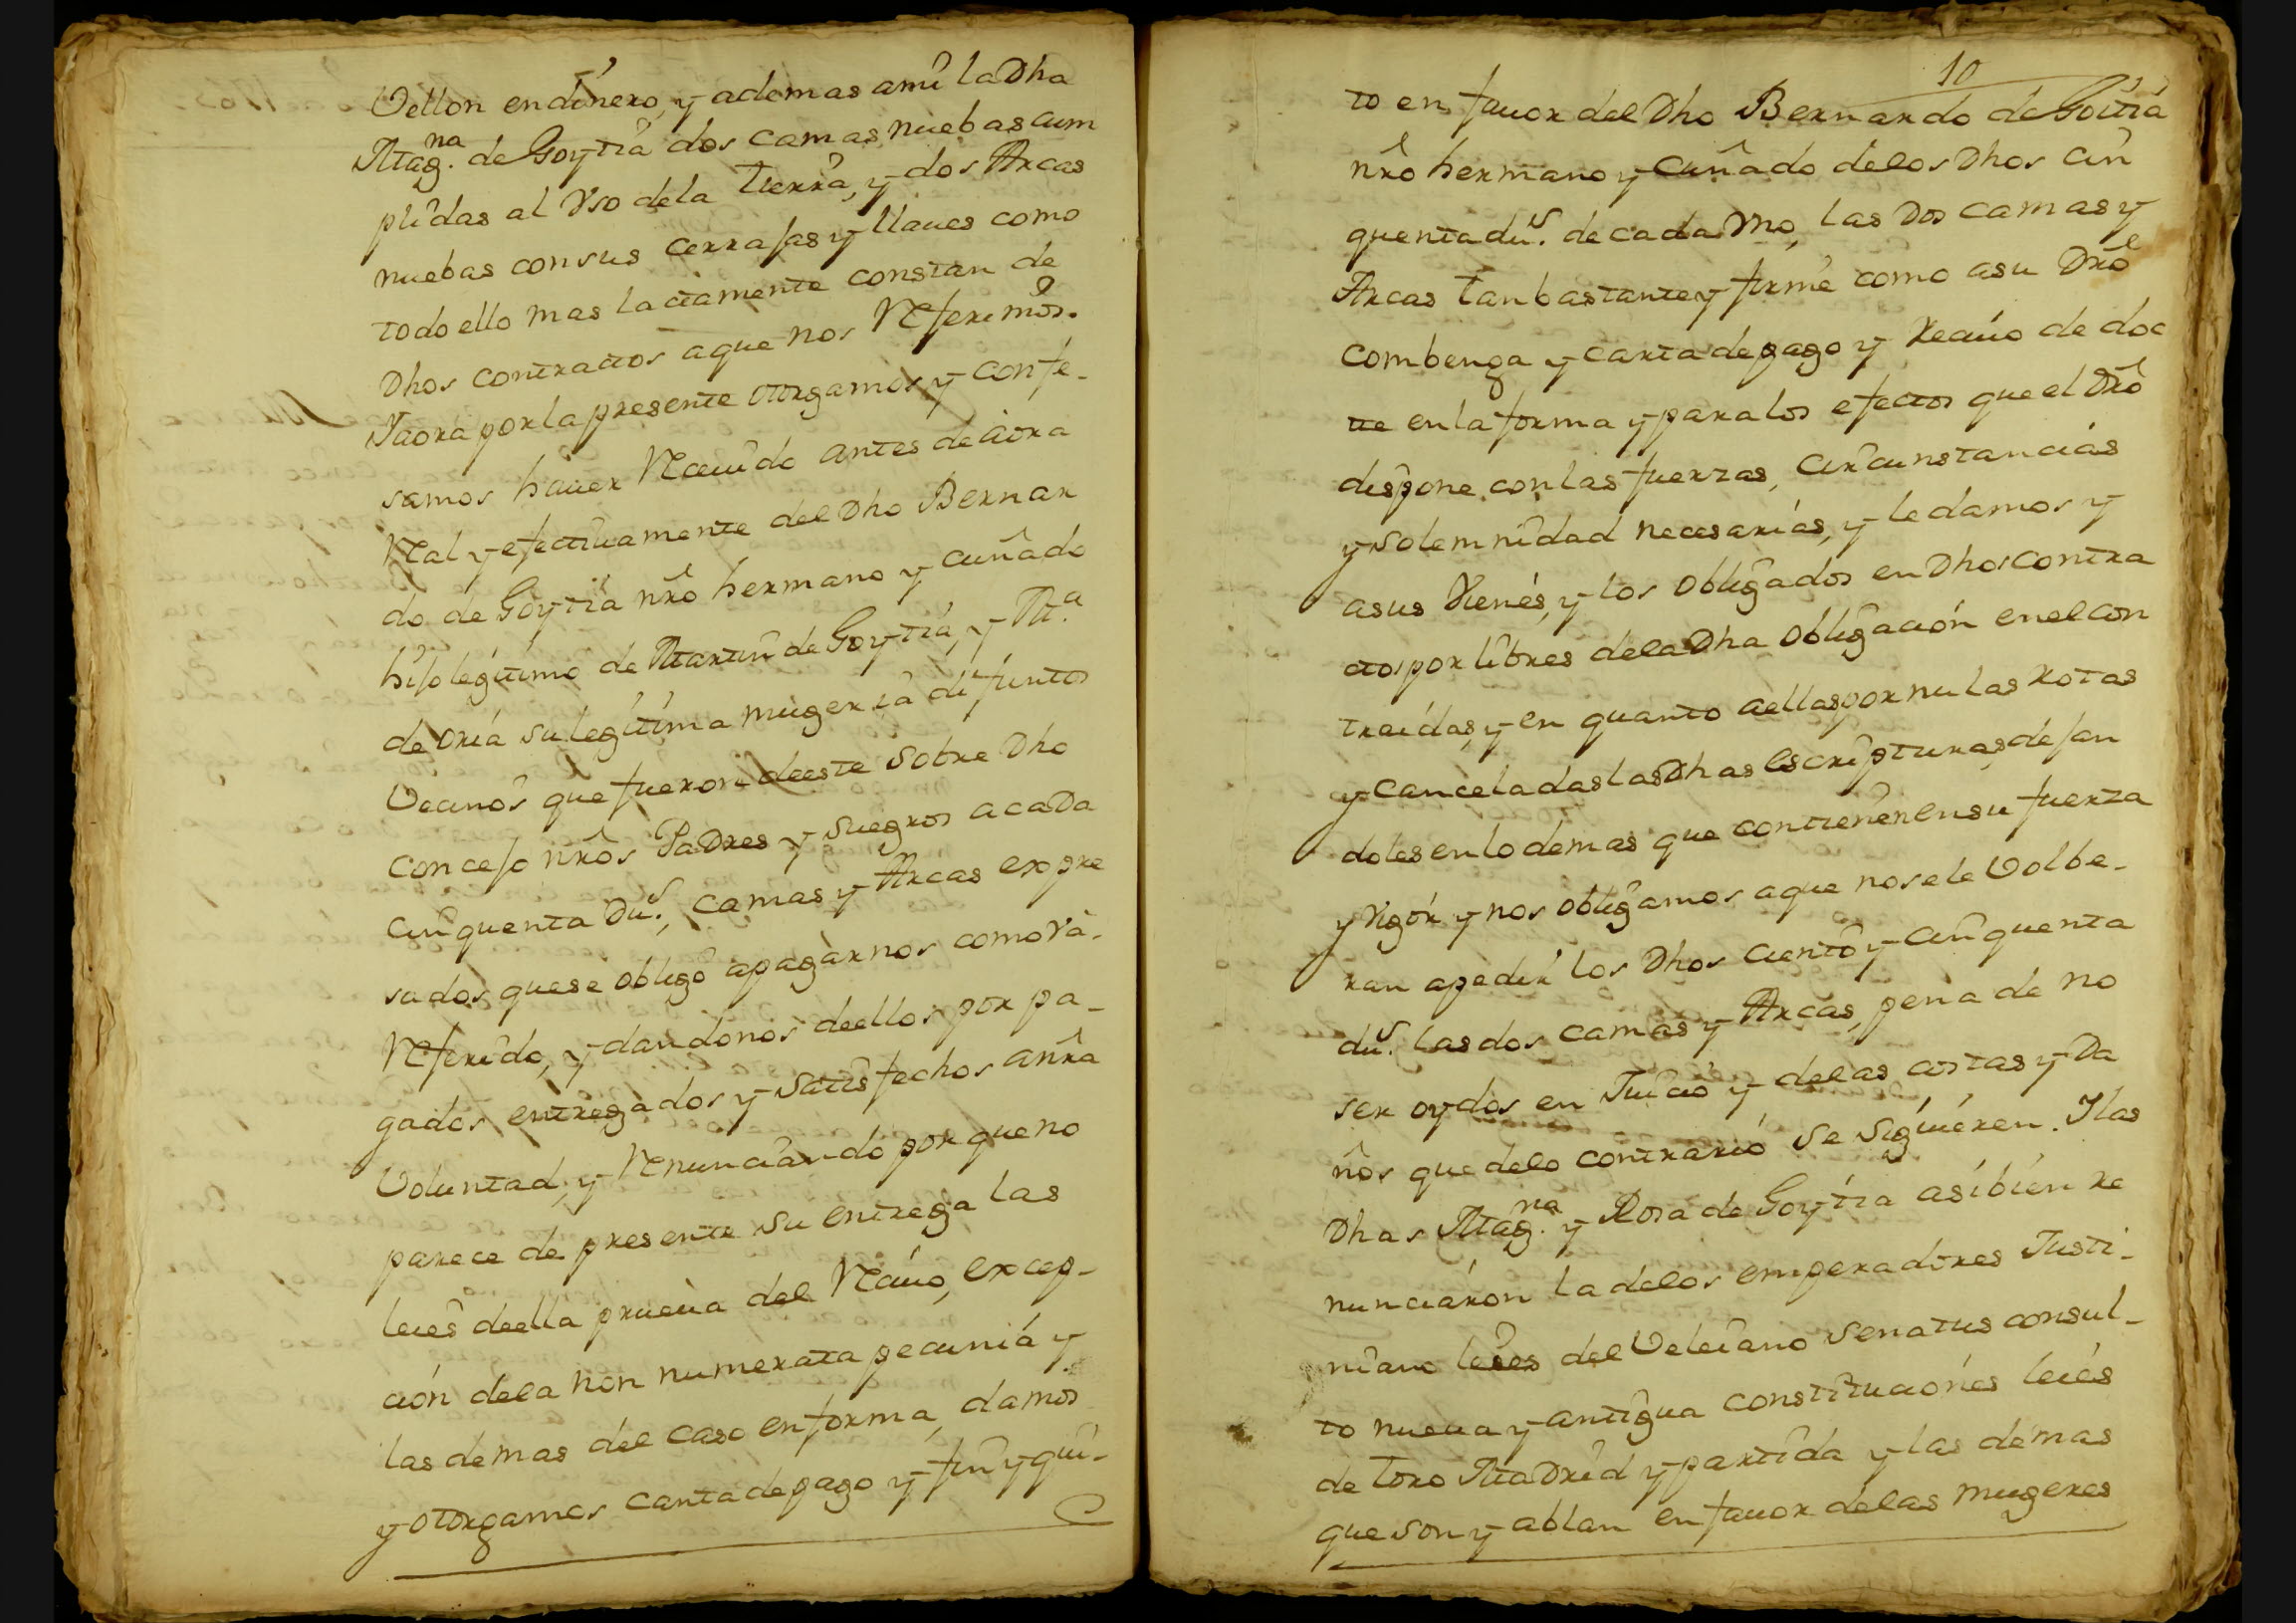 Vellon en dinero, y ademas ami la Dha
Mag.na de Goytia dos camas nuebas cum
plidas al Vso de la tierra, y dos Arcas
nuebas con sus cerrajas y llaues como
todo ello mas laciamente constan de
Dhos contractos a que nos Referimos.
Y aora por la presente otorgamos y confe-
samos hauer Receuido antes de aora
Real y efectiuamente del Dho Bernar
do de Goytia nrô hermano y cuñado
hijo legitimo de Martin de Goytia, y M.a
de oria su legitima muger ia difuntos
Vecinos que fueron de este sobre Dho
concejo nrôs Padres y suegros a cada
cinquenta Du.s, camas y Arcas expre
sados que se obligó a pagarnos como va
Referido, y dandonos de ellos por pa-
gados entregados y satisfechos a nrâ
Voluntad, y Renunciando por que no
parece de presente su entrega las
leies de ella prueua del Reciuo, excep-
ción de la non numerata pecunia y
las demas del caso en forma, damos
y otorgamos carta de pago y fin y qui-
10
to en fauor del Dho Bernardo de Goitia
nrô hermano y cuñado de los Dhos cin
quenta du.s de cada Vno, las Dos camas y
Arcas tan bastante y firme como a su Drô
combenga y carta de pago y Reciuo de doc
te en la forma y para los efectos que el Drô
dispone, con las fuerzas, circunstancias
y solemnidad necesarias, y le damos y
a sus Vienes, y los obligados en Dhos contra
ctos por libres de la Dha obligación en el con
traidas, y en quanto a ellas por nulas Rotas
y canceladas las Dhas escripturas, dejan
doles en lo demas que contienen en su fuerza
y Vigor y nos obligamos a que no se le Volbe-
ran a pedir los Dhos ciento y cinquenta
du.s las dos camas y Arcas, pena de no
ser oydos en Juicio y de las costas y Da
ños que de lo contrario se siguieren. Y las
Dhas Mag.na y Rosa de Goytia asi bien re
nunciarón la de los emperadores Justi-
niano leies del Veleiano senatus consul-
to nueua y antigua constituciónes leies
de toro Madrid y partida y las demas
que son y ablan en fauor de las mugeres